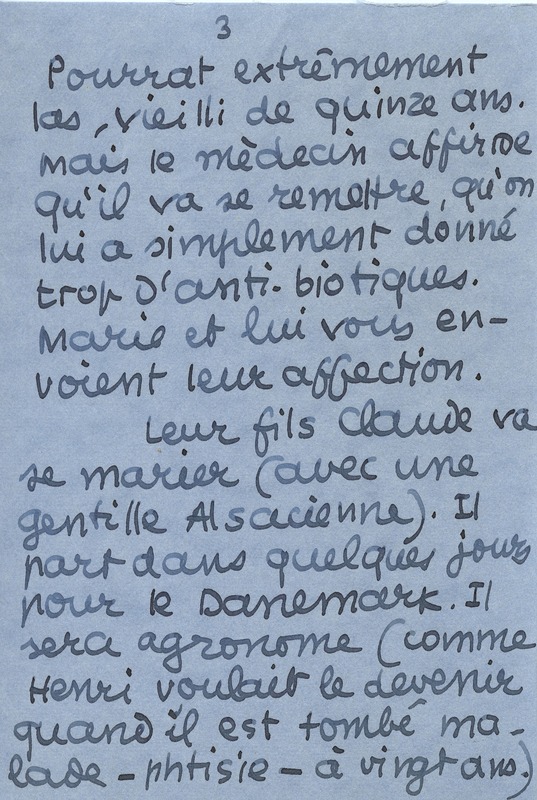 3
Pourrat extrêmement
las, vieilli de quinze ans.
Mais le mèdecin affirme
qu'il va se remettre, qu'on
lui a simplement donné
trop d'anti-biotiques.
Marie et lui vous en-
voient leur affection.
Leur fils Claude va
se marier (avec une
gentille Alsacienne). Il
part dans quelques jours
pour le Danemark. Il
sera agronome (comme
Henri voulait le devenir
quand il est tombé ma-
lade - phtisie - à vingt ans.)